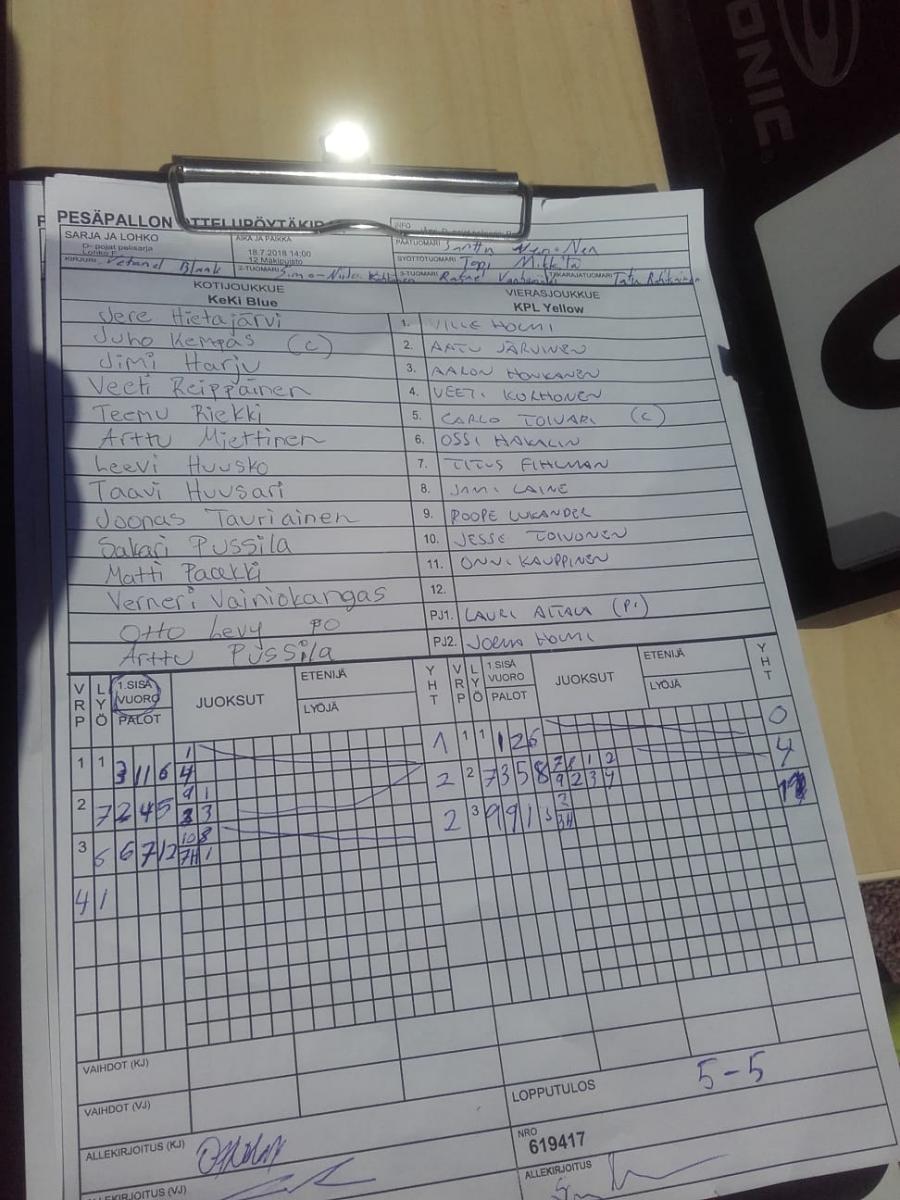 ONIC
PESÄPALLON OTTELUPÖYTÄKIR
SARJA JA LOHKO
D- pojat pelisarja
Lohko F
AIKA JA PAIKKA
18.7.2018 14:00
12 Mäkipuisto
INFO
PÄÄTUOMARI
SYÖTTÖTUOMARI
KIRJURI
2-TUOMARI
3-TUOMARI
TAKARAJATUOMARI
KOTIJOUKKUE
KeKi Blue
VIERASJOUKKUE
KPL Yellow
Jere Hietajärvi
1. VILLE HOLMI
Juho Kempas (C)
2. AATU JÄRVINEN
Jimi Harju
3. AARON HONKANEN
Veeti Reippainen
4. VEETI KORHONEN
Teemu Riekki
5. CARLO TOIVARI (C)
Arttu Miettinen
6. OSSI HAKALIN
Leevi Huusko
7. TITUS FIHLMAN
Taavi Huusari
8. JAMI LAINE
Joonas Tauriainen
9. ROOPE LUKANDER
Sakari Pussila
10. JESSE TOIVONEN
Matti
11. ONNI KAUPPINEN
Verneri Vainiokangas
12.
Otto Levy PO
PJ1. LAURI
Arttu Pussila
PJ2. JORMA HOLMI
VRP LYÖ 1.SISÄ VUORO PALOT JUOKSUT ETENIJÄ LYÖJÄ YHT
VRP LYÖ 1.SISÄ VUORO PALOT JUOKSUT ETENIJÄ LYÖJÄ YHT
1 1 3 11 6 1 4 1
1 1 1 2 6 0
2 7 2 4 5 2
2 7 3 5 8 7 8 1 2 9 2 3 4 4
3 6 6 7 12 10 8 7H 1 2
3 9 9 1
4 1
VAIHDOT (KJ)
VAIHDOT (VJ)
LOPPUTULOS 5-5
ALLEKIRJOITUS (KJ)
NRO
619417
ALLEKIRJOITUS (VJ)
ALLEKIRJOITUS